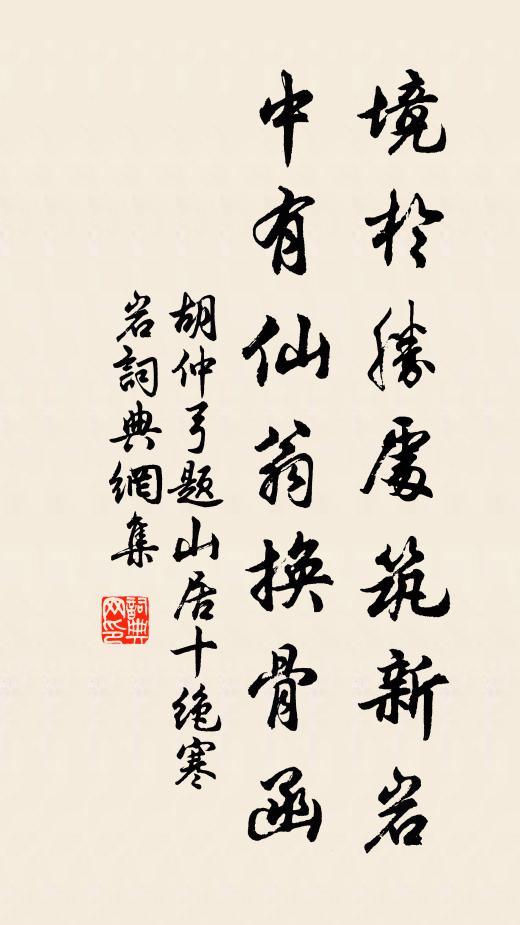 境於勝處筑新岩
中有仙翁換骨函
胡仲弓题山居十绝寒
岩詞典網集
詞典
网印